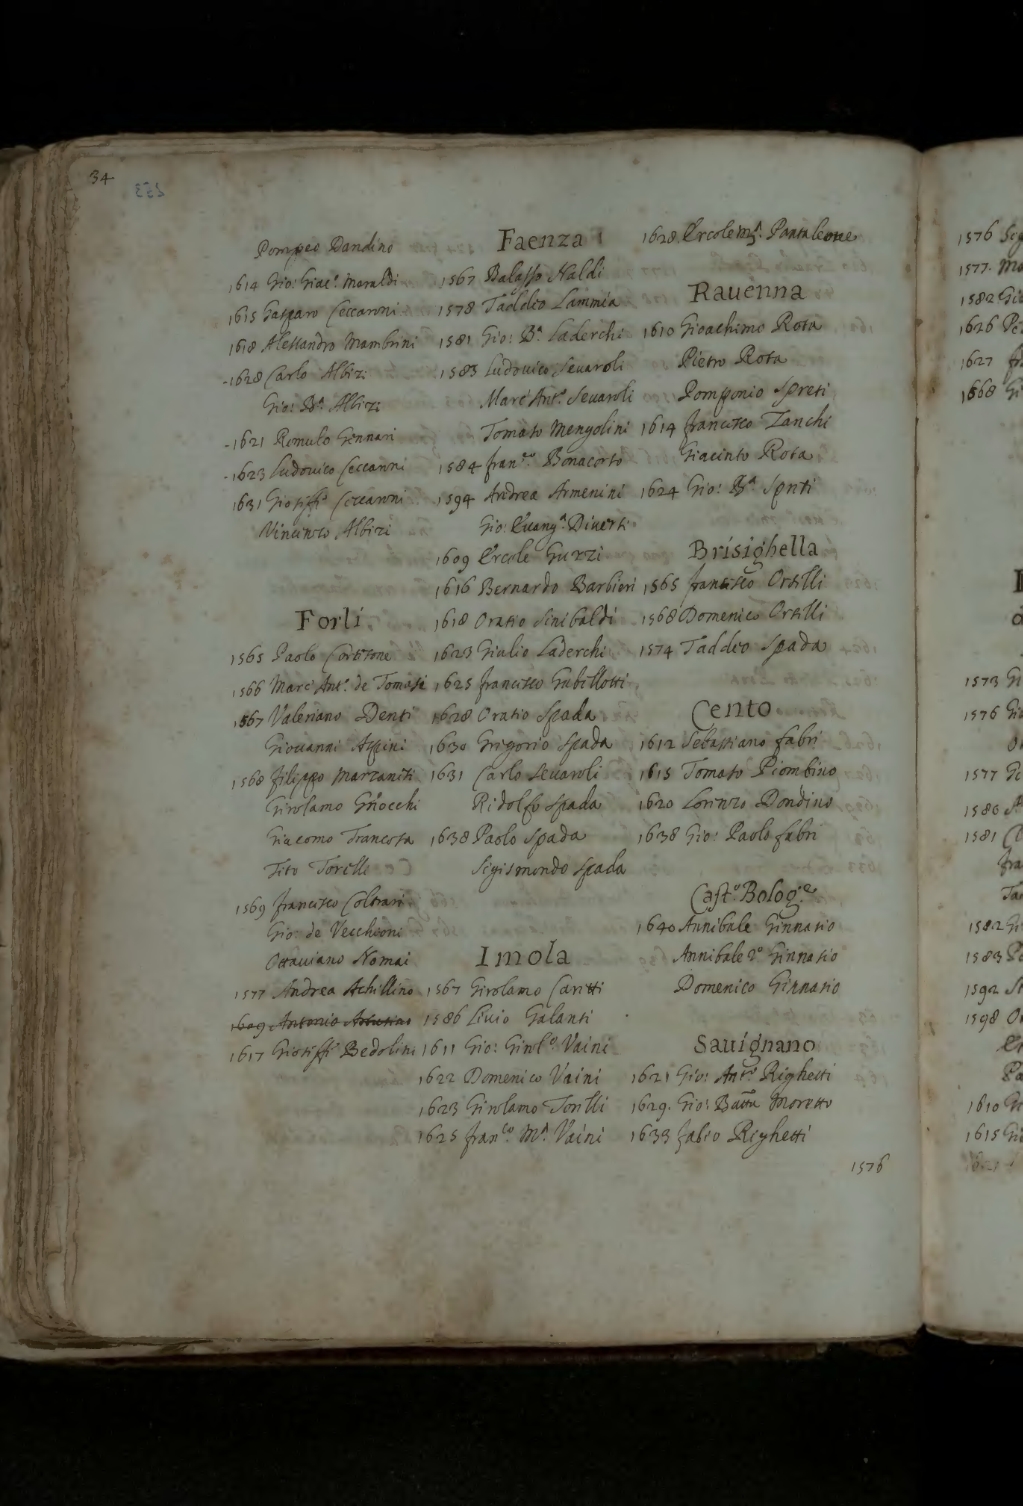 34
Pompeo Dandino
1614 Gio: Giac.º Moraldi
1615 Gasparo Ceccaroni
1618 Alessandro Mambrini
-1628 Carlo Albizi
Gio: B.ª Albizi
-1621 Romulo Gennari
-1623 Ludovico Ceccaroni
1631 Gioseffo Ceccaroni
Vincenzo Albizi
Forlí
1565 Paolo
1566 Marc' Ant.º de Tomasi
1567 Valeriano Denti
Giovanni Aspini
1568 filippo Marzaniti
Girolamo Gnocchi
Giacomo
Tito Torelli
1569 francesco Coltrari
Gio: de Vecchioni
Ottaviano Nomai
1577 Andrea Achillino
1609 Antonio
1617 Gioseffo Bedolini
Faenza
1567 Balasso Naldi
1578 Taddeo Lammia
1581 Gio: B.ª Laderchi
1583 Ludovico Severoli
Marc' Ant.º Severoli
Tomaso Mengolini
1584 fran.co Bonacorso
1594 Andrea Armenini
Gio: Evang.ª
1609 Ercole Guzzi
1616 Bernardo Barbieri
1618 Oratio Sinibaldi
1623 Giulio Laderchi
1625 francesco Gubillotti
1628 Oratio Spada
1630 Grigorio Spada
1631 Carlo Sevaroli
Ridolfo Spada
1638 Paolo Spada
Sigismondo Spada
Imola
1567 Girolamo
1586 Livio Galanti
1611 Gio: Girol.º Vaini
1622 Domenico Vaini
1623 Girolamo Torelli
1625 fran.co M.ª Vaini
1628 Ercole Pantaleone
Rauenna
1610 Gioachimo Rota
Pietro Rota
Pomponio Spreti
1614 francesco Zanchi
Giacinto Rota
1624 Gio: B.ª Spreti
Brisighella
1565 francesco Orselli
1568 Domenico Orselli
1574 Taddeo Spada
Cento
1612 Sebastiano fabri
1615 Tomaso Piombino
1620 Lorenzo Dondino
1638 Gio: Paolo fabri
Cast.º Bolog.se
1640 Annibale Ginnasio
Annibale 2º Ginnasio
Domenico Ginnasio
Sauignano
1621 Gio: Ant.º Righetti
1629. Gio: Batta Moretto
1633 fabio Righetti
1576
1576
1577.
1582
1626
1627
1668
1573
1576
1577
1580
1581
1582
1583
1592
1598
1610
1615